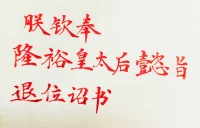 朕钦奉
隆裕皇太后懿旨
退位诏书